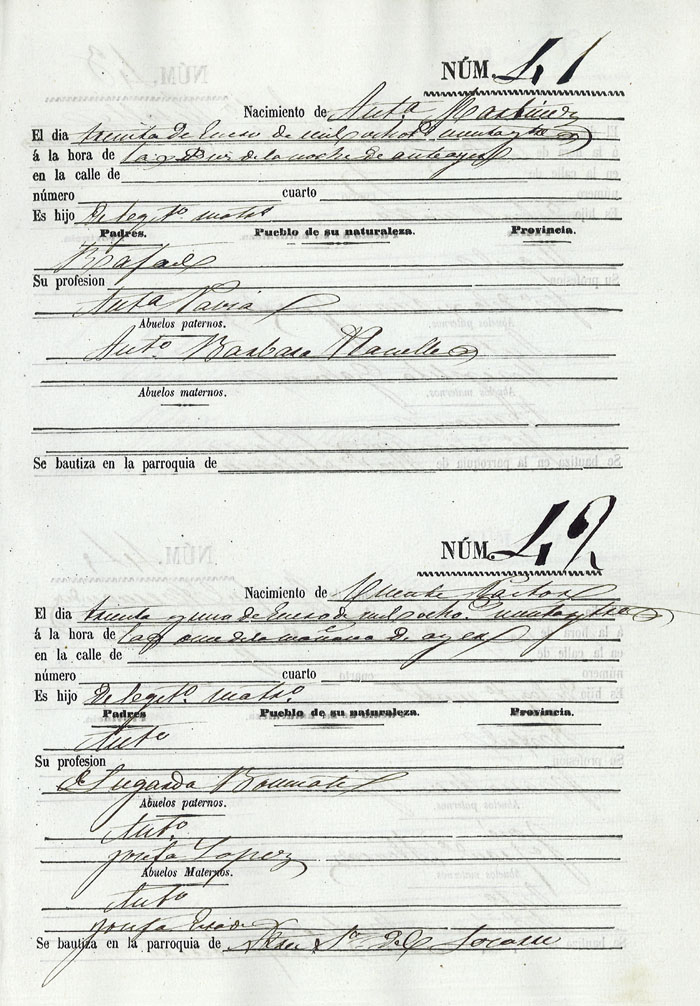 NÚM. 41
Nacimiento de Antª Martinez
El dia treinta de Enero de mil ocho
á la hora de las de la noche de anteayer
en la calle de
número cuarto
Es hijo De legitº matº
Padres. Pueblo de su naturaleza. Provincia.
Rafael
Su profesion
Antª
Abuelos paternos.
Antº Barbara
Abuelos maternos.
Se bautiza en la parroquia de
NÚM. 42
Nacimiento de Vicente Pastor
El dia treinta y uno de Enero de mil ocho
á la hora de las once de la mañana de ayer
en la calle de
número cuarto
Es hijo De legitº matº
Padres Pueblo de su naturaleza. Provincia.
Antº
Su profesion
Abuelos paternos.
Antº
Josefa Lopez
Abuelos Maternos.
Antº
Josefa
Se bautiza en la parroquia de Ntra Sª del Socorro